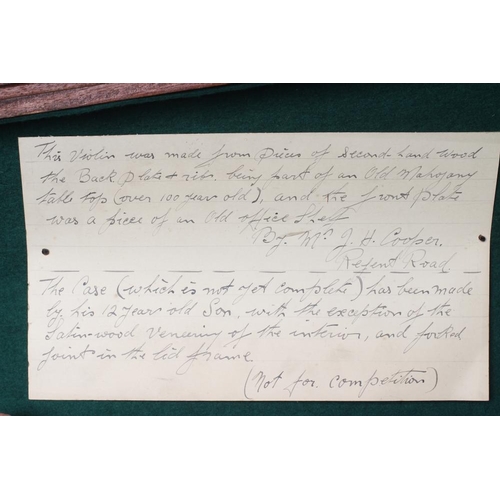 This Violin was made from pieces of Second-hand wood
the Back plate + ribs being part of an Old Mahogany
table top (over 100 year old), and the front plate
was a piece of an Old office Shelf
By. Mr J. H. Cooper.
Regent Road
The Case (which is not yet complete) has been made
by his 12 year old Son, with the exception of the
Satin-wood Veneering of the interior, and forked
joint in the lid frame
(Not for competition)